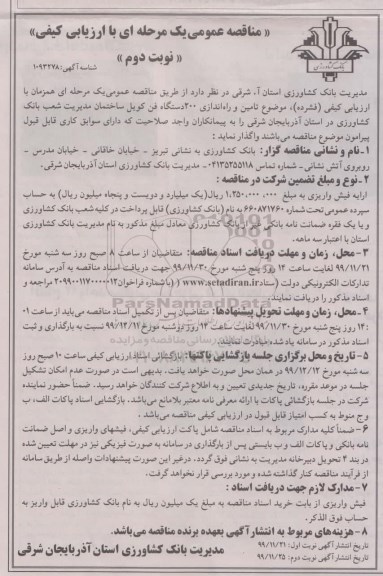 « مناقصه عمومی یک مرحله ای با ارزیابی کیفی»
« نوبت دوم »
شناسه آگهی: ۱۰۹۳۲۷۸
بانک کشاورزی
مدیریت بانک کشاورزی استان آ. شرقی در نظر دارد از طریق مناقصه عمومی یک مرحله ای همزمان با
ارزیابی کیفی (فشرده)، موضوع تامین و راه‌اندازی ۲۰۰دستگاه فن کویل ساختمان مدیریت شعب بانک
کشاورزی در استان آذربایجان شرقی را به پیمانکاران واجد صلاحیت که دارای سوابق کاری قابل قبول
پیرامون موضوع مناقصه می‌باشند واگذار نماید :
۱-نام و نشانی مناقصه گزار: بانک کشاورزی به نشانی تبریز - خیابان خاقانی - خیابان مدرس -
روبروی آتش نشانی - شماره تماس ۰۴۱۳۵۲۵۵۱۱۸ - مدیریت بانک کشاورزی استان آذربایجان شرقی.
۲-نوع و مبلغ تضمین شرکت در مناقصه :
ارایه فیش واریزی به مبلغ ۱.۲۵۰.۰۰۰.۰۰۰ ریال(یک میلیارد و دویست و پنجاه میلیون ریال) به حساب
سپرده عمومی تحت شماره ۶۶۰۸۷۱۷۶۰ به نام (بانک کشاورزی) قابل پرداخت در کلیه شعب بانک کشاورزی
و یا یک فقره ضمانت نامه بانکی غیر از بانک کشاورزی معادل مبلغ مذکور به نام مدیریت بانک کشاورزی
استان با اعتبار سه ماهه.
۳-محل، زمان و مهلت دریافت اسناد مناقصه: متقاضیان از ساعت ۸ صبح روز سه شنبه مورخ
۹۹/۱۱/۲۱ لغایت ساعت ۱۴ روز پنج شنبه مورخ ۹۹/۱۱/۳۰ جهت دریافت اسناد مناقصه به آدرس سامانه
تدارکات الکترونیکی دولت (ستاد www.setadiran.ir) ( باشماره فراخوان ۲۰۹۹۰۰۱۱۷۰۰۰۰۰۱۲ مراجعه و
اسناد مذکور را دریافت نمایند.
۴-محل، زمان و مهلت تحویل پیشنهادها: متقاضیان پس از تکمیل اسناد مناقصه می‌باید از ساعت ۰۱
:۱۴ روز پنج شنبه مورخ ۹۹/۱۱/۳۰ لغایت ساعت ۱۴ روز دوشنبه مورخ ۹۹/۱۲/۱۲ نسبت به بارگذاری و ثبت
اسناد مذکور در سامانه یاد شده مبادرت نمایند.
۵-تاریخ و محل برگزاری جلسه بازگشایی پاکتها: بازگشائی اسناد ارزیابی کیفی ساعت ۱۰ صبح روز
سه شنبه مورخ ۹۹/۱۲/۱۲ در همان محل صورت خواهد یافت. بدیهی است در صورت عدم امکان تشکیل
جلسه در موعد مقرره، تاریخ جدیدی تعیین و به اطلاع شرکت کنندگان خواهد رسید. ضمناً حضور نماینده
شرکت در جلسه بازگشائی پاکات با ارائه معرفی نامه معتبر بلامانع می‌باشد. بازگشایی اسناد پاکات الف، ب
و ج منوط به کسب امتیاز قابل قبول در ارزیابی کیفی مناقصه می‌باشد .
۶-ضمناً کلیه مدارک مربوط به اسناد مناقصه شامل پاکت ارزیابی کیفی، فیشهای واریزی و اصل ضمانت
نامه بانکی و پاکات الف و ب بایستی پس از بارگذاری در سامانه به صورت فیزیکی نیز در مهلت تعیین شده
در بند ۴ تحویل دبیرخانه مدیریت به نشانی فوق گردد، درغیر این صورت پیشنهادات واصله از طریق سامانه
از فرآیند مناقصه کنار گذاشته شده و مورد بررسی قرار نخواهد گرفت.
۷-مدارک لازم جهت دریافت اسناد :
فیش واریزی از بابت خرید اسناد مناقصه به مبلغ یک میلیون ریال به نام بانک کشاورزی قابل واریز به
حساب فوق الذکر.
۸-هزینه‌های مربوط به انتشار آگهی بعهده برنده مناقصه می‌باشد.
تاریخ انتشار آگهی نوبت اول: ۹۹/۱۱/۲۱
تاریخ انتشار آگهی نوبت دوم: ۹۹/۱۱/۲۵
مدیریت بانک کشاورزی استان آذربایجان شرقی
ParsNamadData